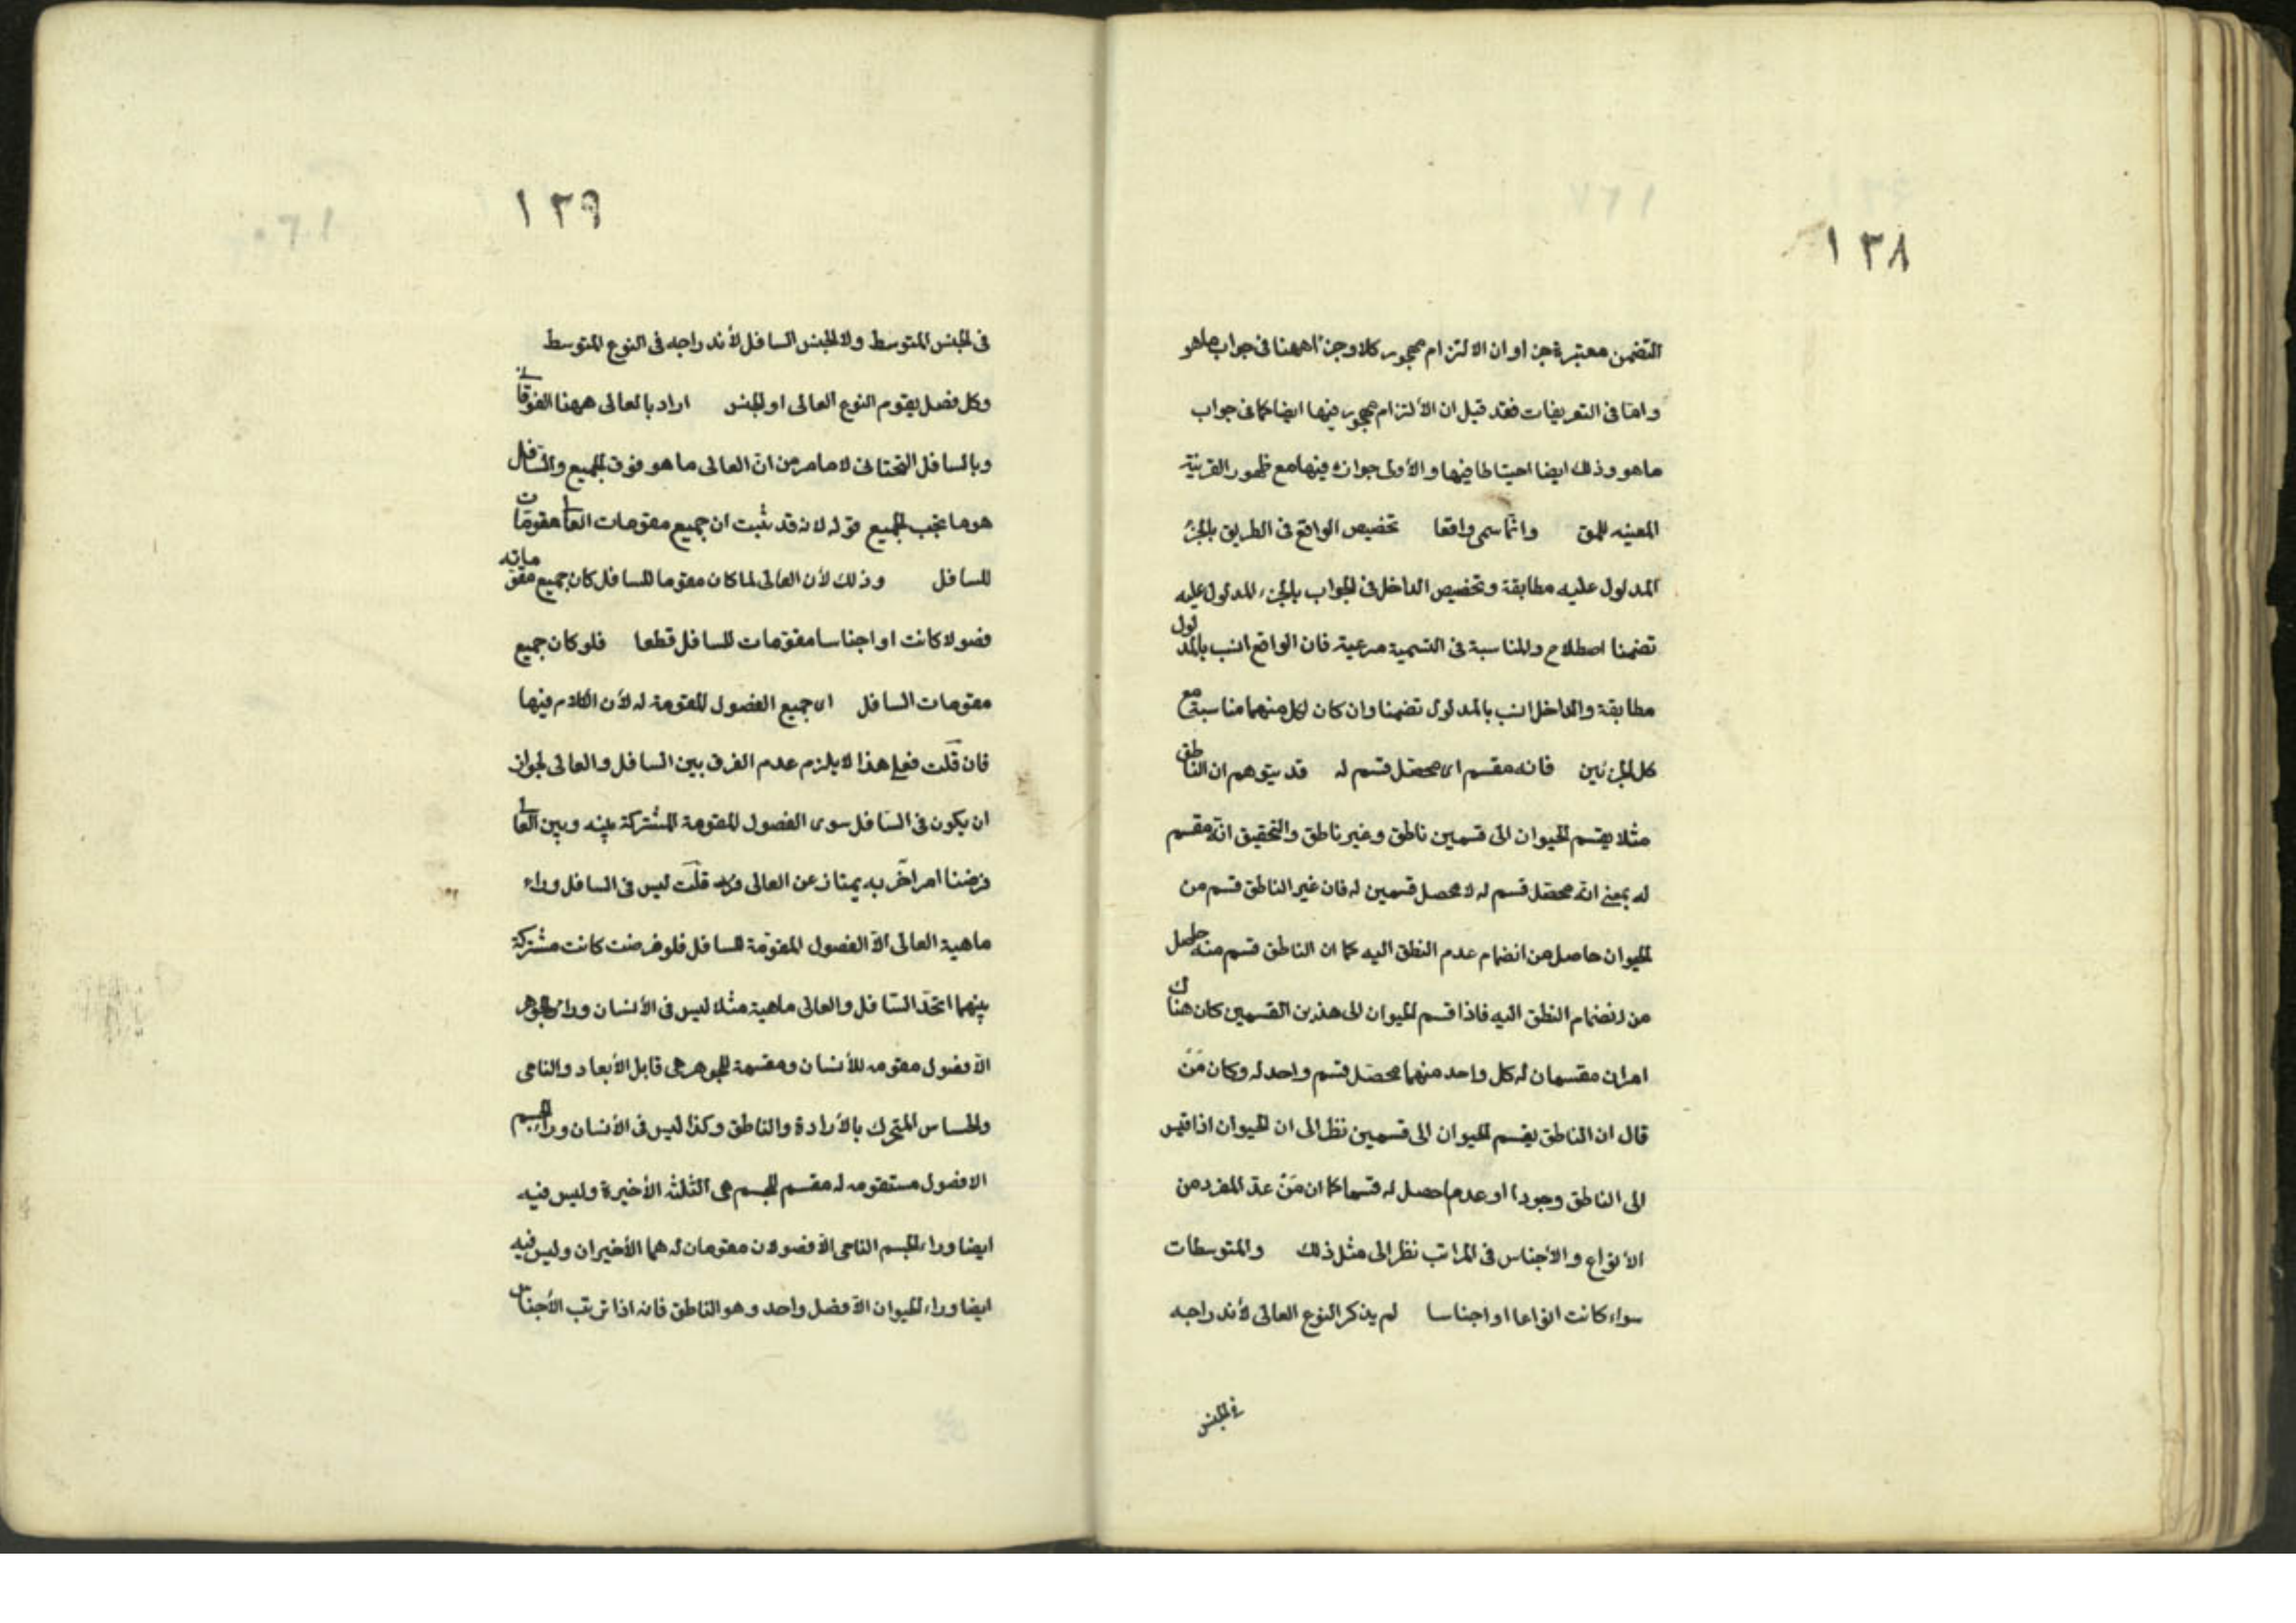 ١٣٨
التضمن معتبرة جزاوان الالتزام مهجور كلا وجزأ ههنا فى جواب ماهو
واما فى التعريفات فقد قيل ان الألتزام مهجور فيها ايضا كما فى جواب
ماهو وذلك ايضا احتياطا فيها والأولى جوازه فيها مع ظهور القرينة
المعينه للمق وانما سمى واقعا تخصيص الواقع فى الطريق بالجزء
المدلول عليه مطابقة وتخصيص الداخل فى الجواب بالجزء المدلول عليه
تضمنا اصطلاح والمناسبة فى التسمية مرعية فان الواقع انسب بالمدلول
مطابقة والداخل انسب بالمدلول تضمنا وان كان لكل منهما مناسبة مع
كل الجزئين فانه مقسم اى محصل قسم له قد يتوهم ان الناطق
مثلا يقسم الحيوان الى قسمين ناطق وغير ناطق والتحقيق انه مقسم
له بمعنى انه محصل قسم له لا محصل قسمين له فان غير الناطق قسم من
الحيوان حاصل من انضمام عدم النطق اليه كما ان الناطق قسم منه حاصل
من انضمام النطق اليه فاذا قسم الحيوان الى هذين القسمين كان هناك
امران مقسمان له كل واحد منهما محصل قسم واحد له وكان مَنْ
قال ان الناطق يقسم الحيوان الى قسمين نظر الى ان الحيوان اذا قيس
الى الناطق وجودا او عدما حصل له قسما كما ان مَنْ عدّ المفرد من
الأنواع والأجناس فى المراتب نظر الى مثل ذلك والمتوسطات
سواء كانت انواعا او اجناسا لم يذكر النوع العالى لأندراجه
فى الجنس
١٣٩
فى الجنس المتوسط ولا الجنس السافل لأندراجه فى النوع المتوسط
وكل فصل يقوم النوع العالى او الجنس اراد بالعالى ههنا الفوقانى
وبالسافل التحتانى لا ما مر من ان العالى ما هو فوق الجميع والسافل
هو ما تحت الجميع قوله لانه قد ثبت ان جميع مقومات العالى مقومات
للسافل وذلك لأن العالى لما كان مقوما للسافل كان جميع مقوماته
فصولا كانت او اجناسا مقومات للسافل قطعا فلو كان جميع
مقومات السافل اى جميع الفصول المقومة له لأن الكلام فيها
فان قلت فعلى هذا لا يلزم عدم الفرق بين السافل والعالى لجواز
ان يكون فى السافل سوى الفصول المقومة المشتركة بينه وبين العالى
فرضنا امر اخر به يمتاز عن العالى قلت ليس فى السافل وراء
ماهية العالى الا الفصول المقومة للسافل فلو فرضت كانت مشتركة
بينهما اتحد السافل والعالى ماهية مثلا ليس فى الأنسان وراء الجوهر
الا فصول مقومه للأنسان ومقسمة للجوهر هى قابل الأبعاد والنامى
والحساس المتحرك بالأرادة والناطق وكذا ليس فى الأنسان وراء الجسم
الا فصول مستقومه له مقسم للجسم هى الثلثه الأخيرة وليس فيه
ايضا وراء الجسم النامى الا فصولان مقومان له هما الأخيران وليس فيه
ايضا وراء الحيوان الا فصل واحد وهو الناطق فانه اذا ترتب الأجناس